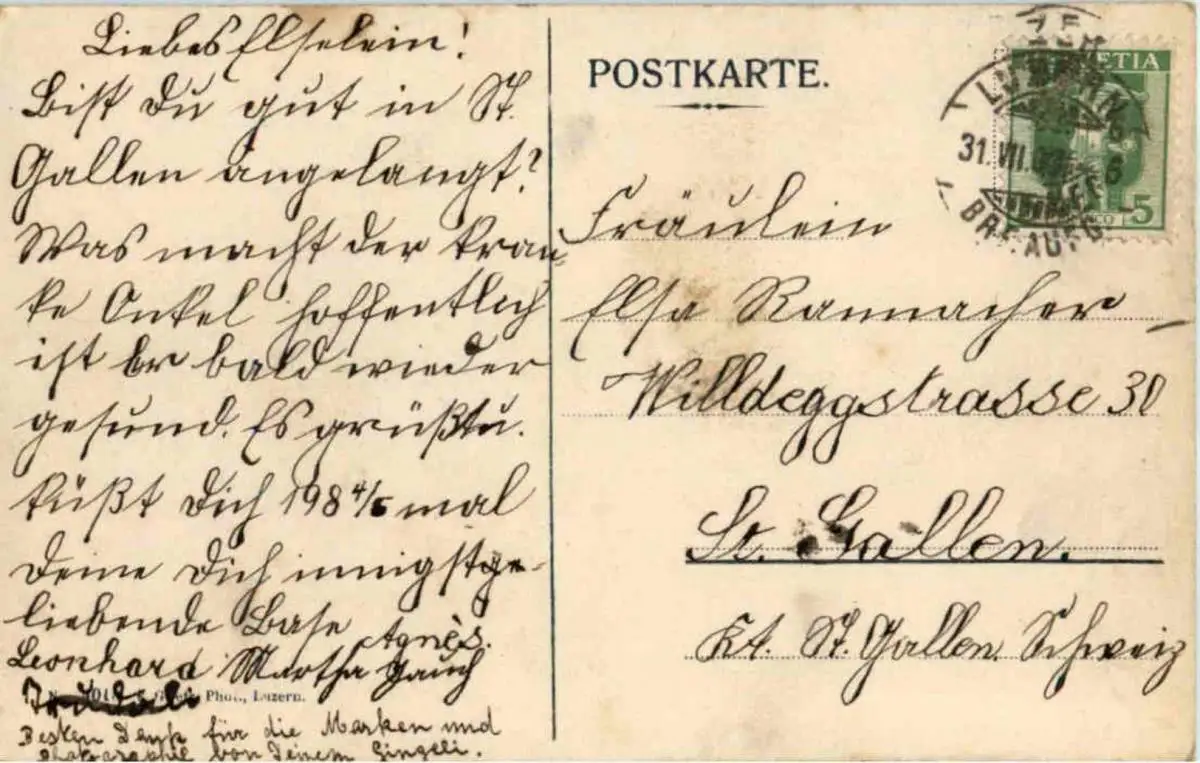 Liebes Elselein!
Bist Du gut in St.
Gallen angelangt?
Was macht der kran-
ke Onkel hoffentlich
ist er bald wieder
gesund. Es grüßt u.
küßt Dich 198 4/5 mal
Deine Dich innigstge-
liebende Base Agnès.
Leonhard Martha Jauch
Phot., Luzern.
Besten Dank für die Marken und
Photographie von Deinem Gingeli.
POSTKARTE.
HELVETIA
5
LUZERN
31. VII.
BRF. AUFG.
Fräulein
Elsa Rannacher
Willdeggstrasse 30
St. Gallen.
Kt. St. Gallen. Schweiz